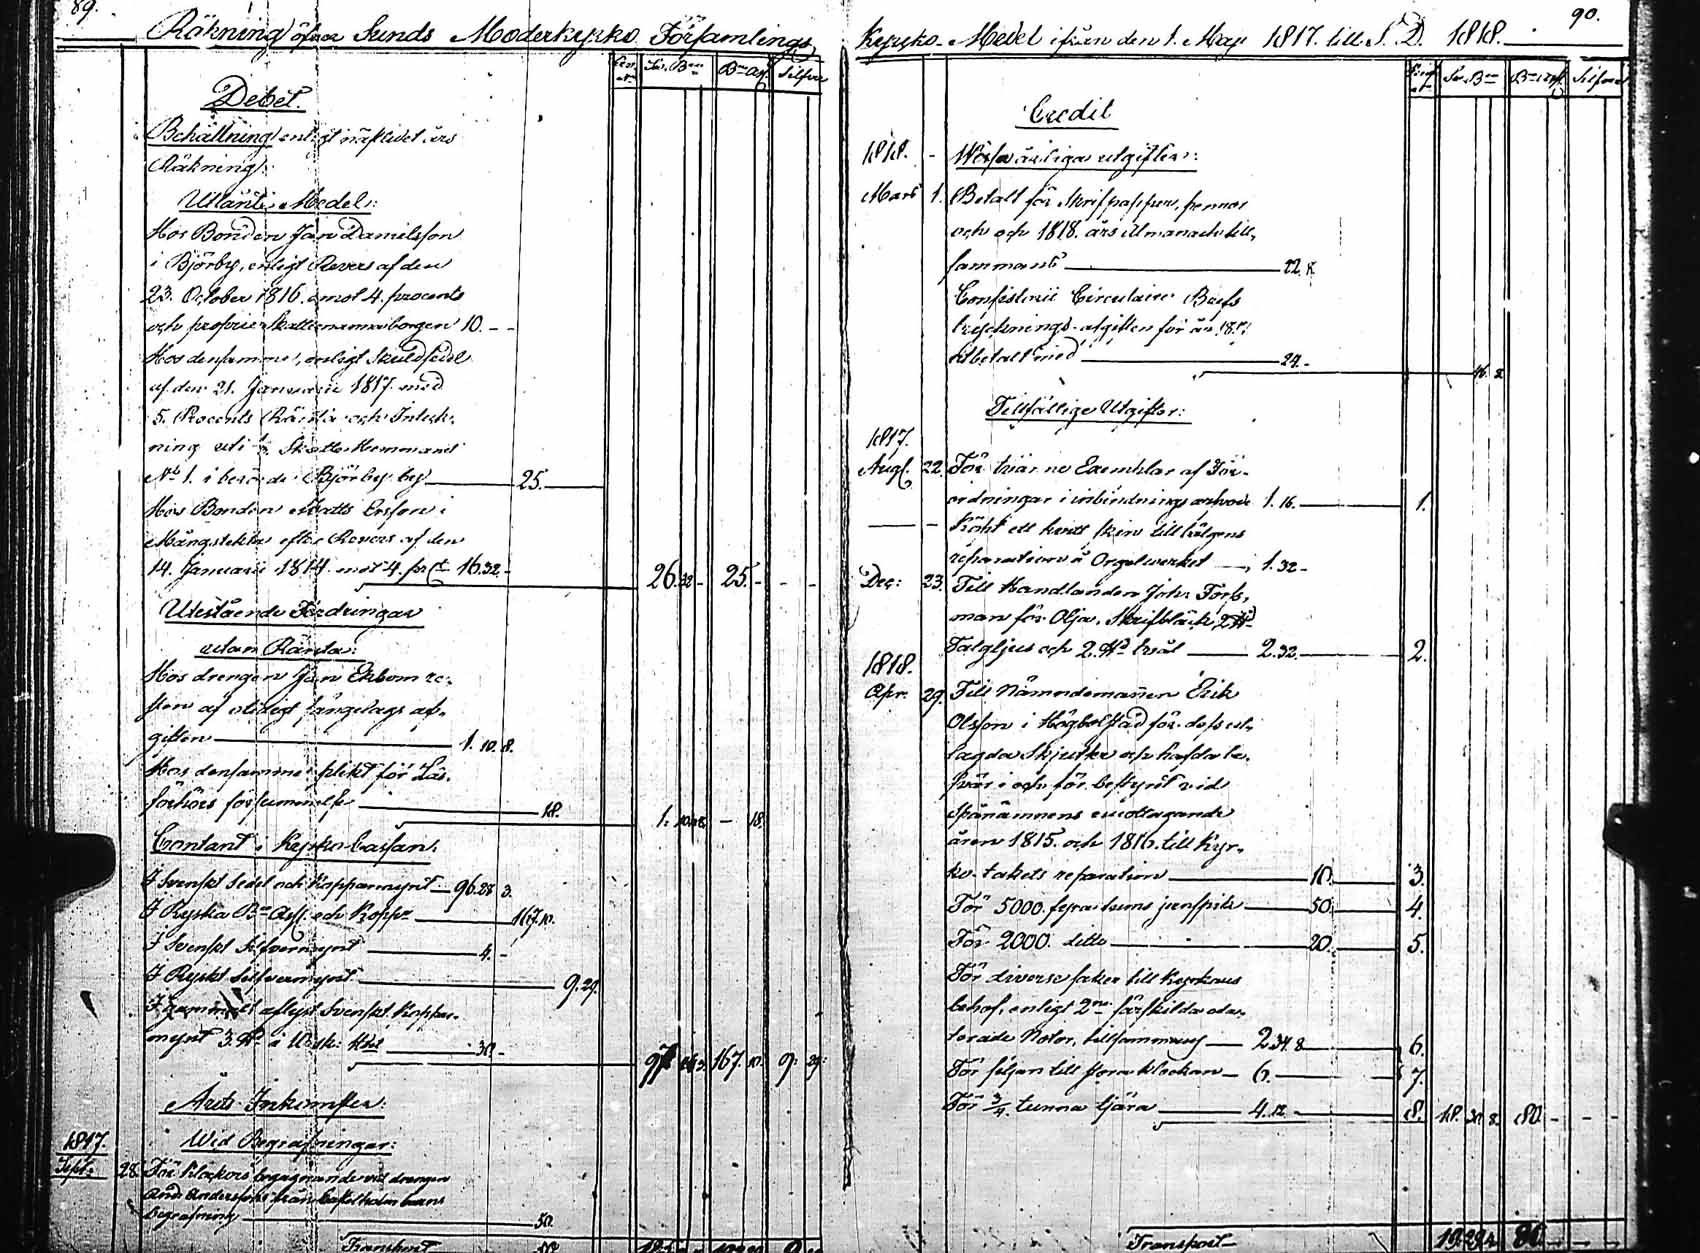 89.
Räkning öfver Sunds Moderkyrko Församlings
Sv. Bco
Bco Ass.
Silfver
Debet.
Behållning enligt nästledit års
Räkning:
Utlånte Medel:
Hos Bonden Jan Danielsson
i Björby, enligt Revers af den
23. October 1816. emot 4. procents
och proprie Skattemanna borgen 10. - -
Hos densamme, enligt Skuldsedel
af den 21. Januarii 1817. med
5. Procents Ränta och Inteck-
ning uti Skatte Hemmanet
No 1. i berörde Björby by 25.
Hos Bonden Matts Ersson i
Mångstekta efter Revers af den
14. Januarii 1814. mot 4. prCt 16.32.- 26.32 - 25. - - -
Utestående Fordringar
utan Ränta:
Hos drengen Jan Ekbom re-
sten af ålidegt sängelags af-
giften 1. 10. 8.
Hos densamme plikt för Läs-
förhörs försummelse 18. 1. 10. 8 - 18.
Contant i Kyrko Cassan:
I Svenskt Sedel och Kopparmynt 96.28 3.
I Ryska Bco Ass. och Kopp. 167.10.
I Svenskt Silfvermynt 4. -
I Ryskt Silfvermynt 9.29.
I gammalt aflyst Svenskt Koppar-
mynt 3. à 30. - 97. 167. 10. 9. 29.
Årets Inkomster:
1817. Wid Begrafningar:
Sept: 28. För Klockors begagnande vid drengen
And. Anderssons från Castelholm
begrafning 50.
Transport
90.
Kyrko-Medel ifrån den 1. Maji 1817. till S. D. 1818.
Sv. Bco
Bco Ass.
Silfver
Credit
1818. - Wissa årliga utgifter:
Mars 1. Betalt för Skrifpapper, pennor
och och 1818. års Almanach till-
sammans 22. 8.
Consistorii Circulaire Brefs
trycknings-afgiften för år 181
utbetalt med 24. - 46. 8.
Tillfällige Utgifter:
1817.
Aug. 22. För tvänne Exemplar af För-
ordningar i inbindnings arfvode 1. 16. 1.
- Köpt ett hvitt skin till bälgens
reparation å Orgelverket 1. 32 -
Dec: 23. Till Handlanden Joh. Forss-
man för Olja, Skrifbläck, 2
Talgljus och 2. tvål 2. 32. 2.
1818.
Apr. 29. Till Nämndemannen Erik
Olsson i Högbolstad för dess ut-
lagda Skjuts och hafda be-
svär i och för bestyret vid
Spånämnens emottagande
åren 1815. och 1816. till Kyr-
ko-takets reparation 10. 3.
För 5000. fyra tums pertspik 50. 4.
För 2000. ditto 20. 5.
För diverse saker till Kyrkans
behof, enligt 2ne särskilda
Notor, tillsammans 2.34.8 6.
För till stora klockan 6. 7.
För 3/4 tunna tjära 4.12. 8. 18. 30. 8. 80. - - -
Transport 80.